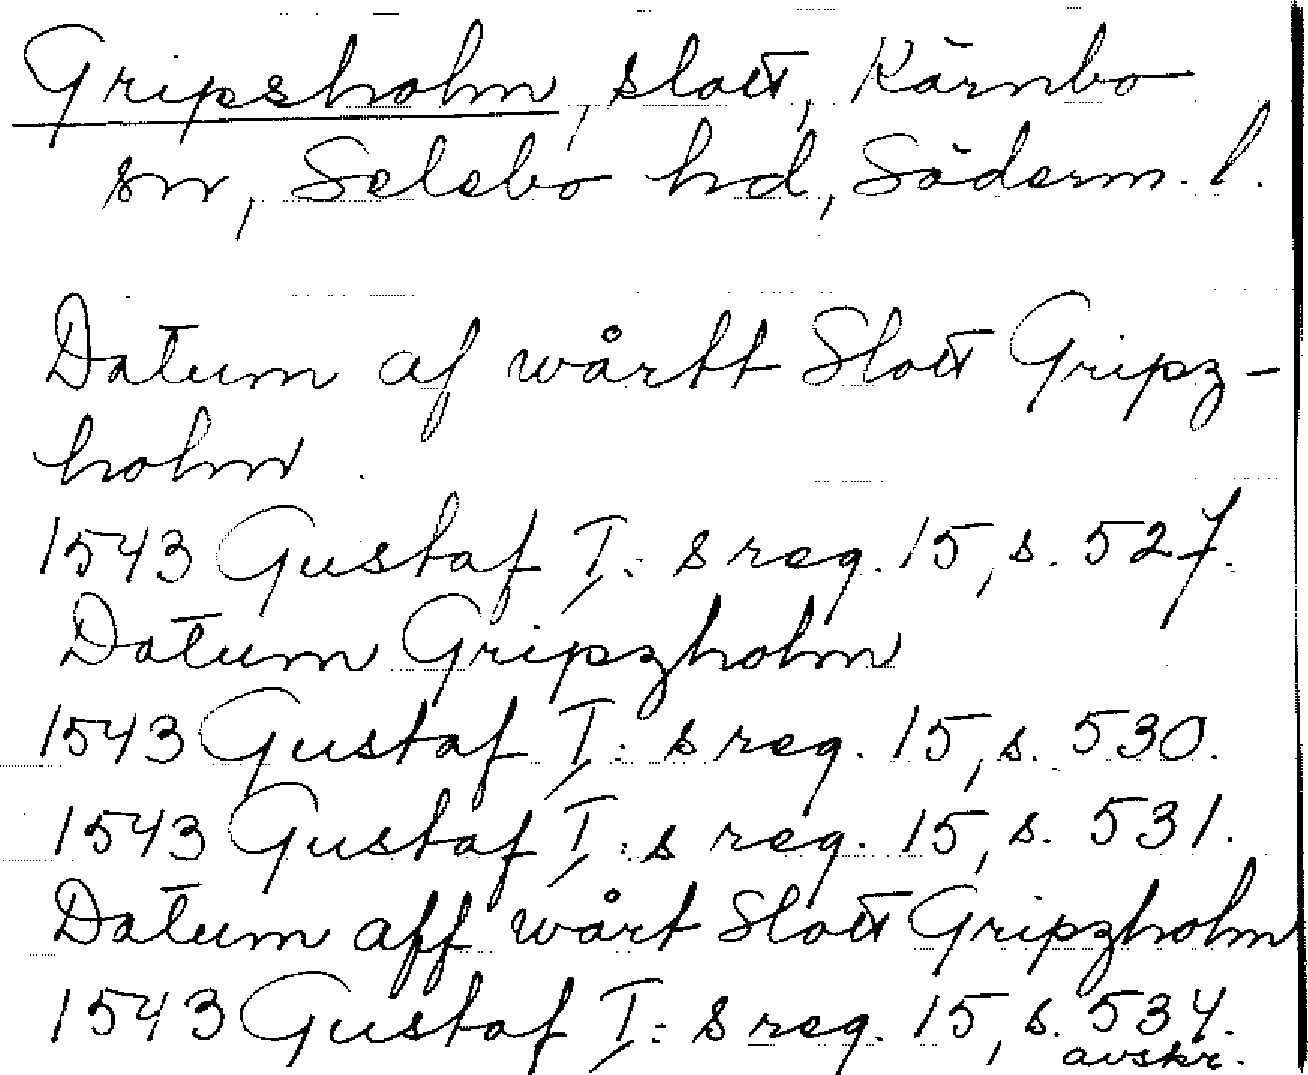 Gripsholm, slott, Kärnbo
sn, Selebo hd, Söderm. l.
Datum af wårtt Slott Gripz-
holm.
1543 Gustaf I:s reg. 15, s. 527.
Datum Gripzholm
1543 Gustaf I:s reg. 15, s. 530.
1543 Gustaf I:s reg. 15, s. 531.
Datum aff wårt Slott Gripzholm
1543 Gustaf I:s reg. 15, s. 534.
avskr.